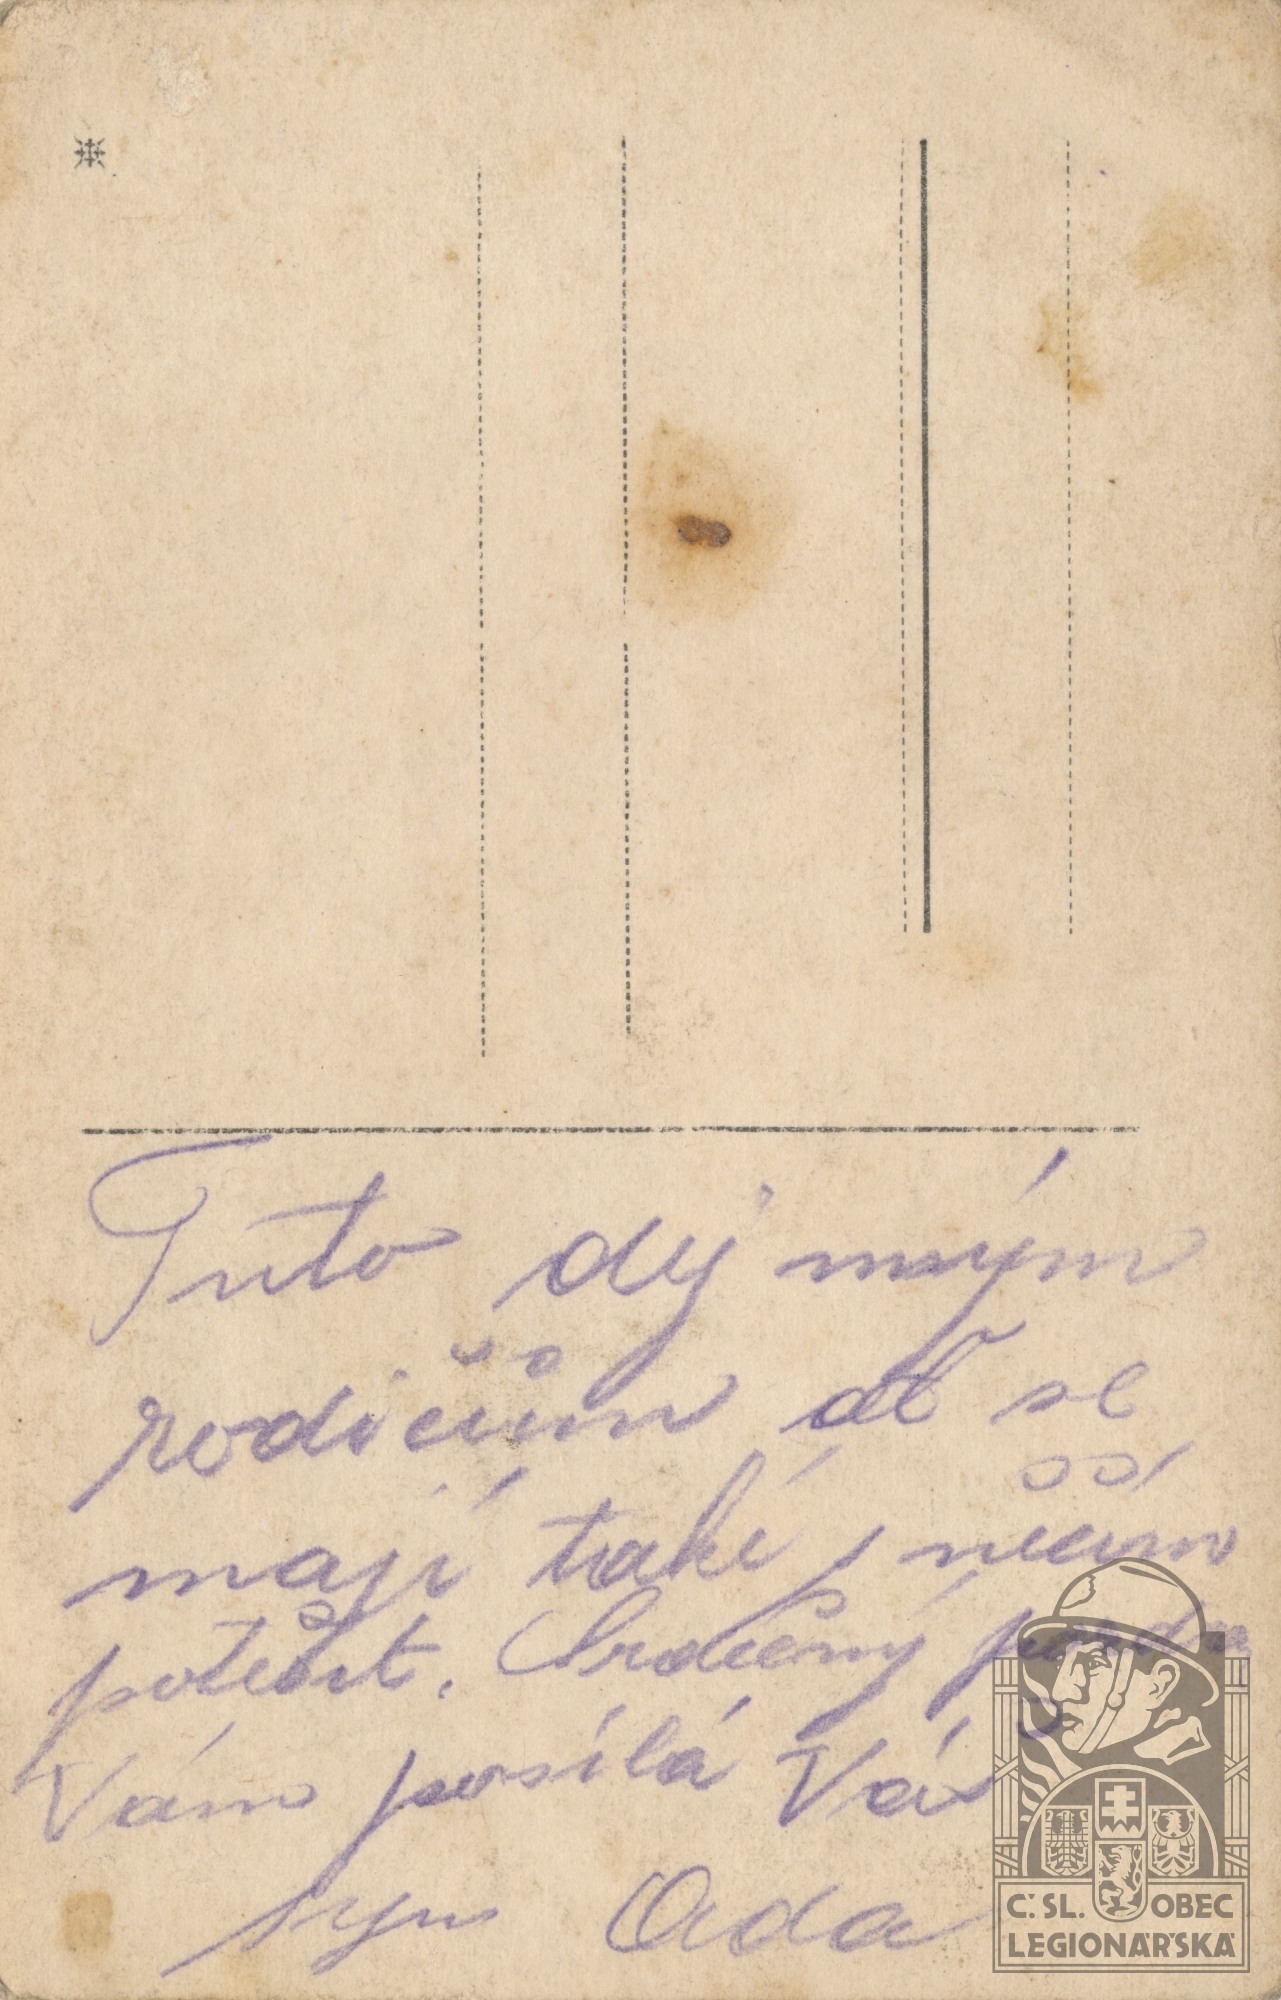 Tuto dej mým
rodičům ať se
mají také s něčim
potěšit. Srdečný pozdrav
Vám posílá Váš
syn Ada
Č:SL. OBEC
LEGIONÁŘSKÁ